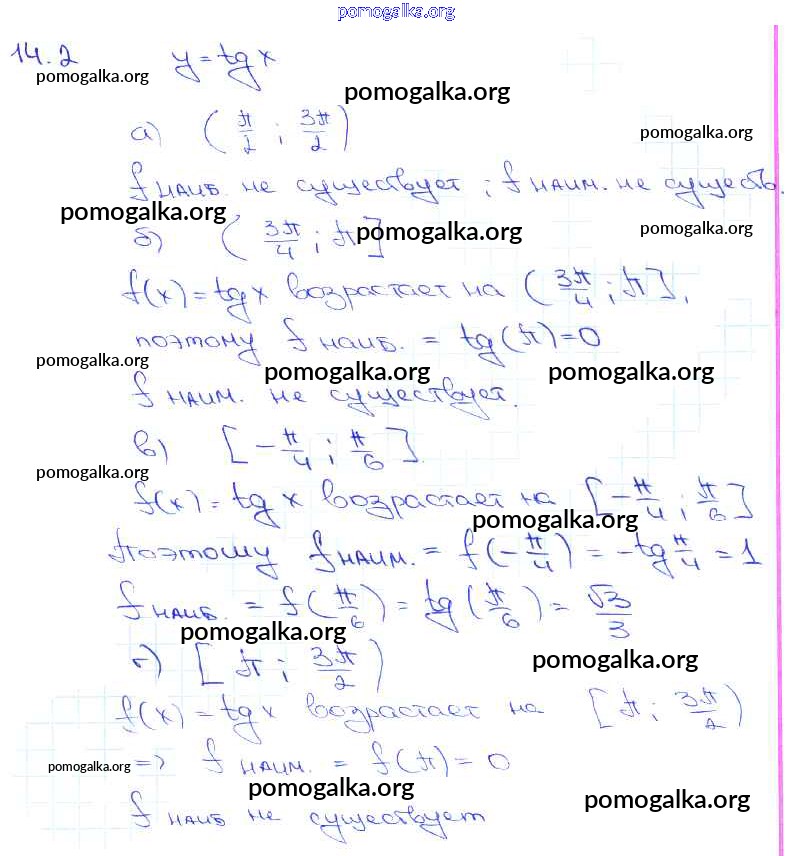 pomogalka.org
14.2 y = tg x
pomogalka.org pomogalka.org
а) (π/2 ; 3π/2) pomogalka.org
f наиб. не существует ; f наим. не существ.
pomogalka.org
б) (3π/4 ; π] pomogalka.org pomogalka.org
f(x) = tg x возрастает на (3π/4 ; π],
поэтому f наиб. = tg(π) = 0
pomogalka.org pomogalka.org pomogalka.org
f наим. не существует.
в) [-π/4 ; π/6]
pomogalka.org
f(x) = tg x возрастает на [-π/4 ; π/6]
pomogalka.org
Поэтому f наим. = f(-π/4) = -tg π/4 = 1
f наиб. = f(π/6) = tg(π/6) = √3/3
pomogalka.org
г) [π ; 3π/2) pomogalka.org
f(x) = tg x возрастает на [π ; 3π/2)
pomogalka.org => f наим. = f(π) = 0
pomogalka.org pomogalka.org
f наиб не существует